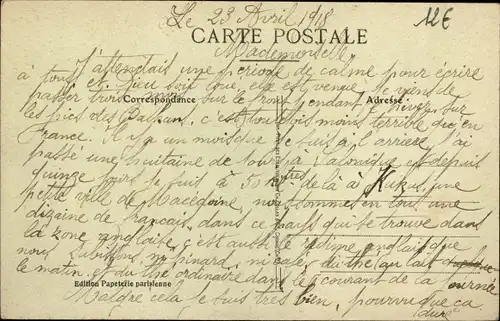 Le 23 Avril 1918
12€
CARTE POSTALE
Mademoiselle,
J'attendais une période de calme pour écrire
à tous si peu soit que, elle est venue. Je viens de
passer trois mois sur le front pendant l'hiver sur
Correspondance
Adresse
les pics des Balkans, c'est toutefois moins terrible qu'en
France. Il y a un mois que je suis à l'arrière, j'ai
passé une huitaine de jours à Salonique et depuis
quinze jours je suis à 50 k de là à Kukus, une
petite ville de Macédoine, nous sommes en tout une
dizaine de français, dans ce pays qui se trouve dans
la zone anglaise, c'est aussi le régime anglais que
nous subissons, ni pinard, ni café, du thé au lait
le matin, et du thé ordinaire dans le courant de la journée
Edition Papeterie parisienne
Malgré cela je suis très bien, pourvu que ça
dure